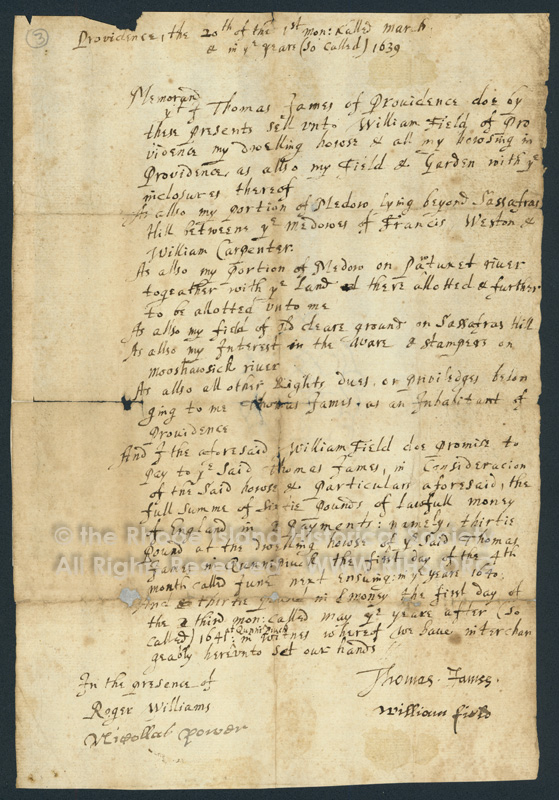 3
Providence, the 20th of the 1st mon: Called march
& in ye yeare (so Called) 1639
Memorand
yt I Thomas James of Providence doe by
these presents sell vnto William Field of Pro
vidence my dwelling howse & all my howsing in
Providence, as allso my Field & Garden with ye
inclosures thereof
As allso my portion of Medow lying beyond Sassafras
Hill betweene ye medowes of Francis Weston &
William Carpenter.
As allso my Portion of Medow on Patuxet river
togeather with ye Land there allotted & further
to be allotted vnto me
As allso my field of cleare ground on Sassafras Hill
As allso my Interest in the Ware & stampers on
mooshawsick river
As allso all other Rights dues, or priviledges belon
ging to me Thomas James, as an Inhabitant of
Providence
And I the aforesaid William Field doe promise to
pay to ye said Thomas James, in Consideracion
of the said howse & particulars aforesaid, the
full summe of Sixtie Pounds of lawfull money
of England in 2 Payments: namely, thirtie
Pound at the dwelling howse of ye said Thomas
James in Quinnipiuck the first day of the 4th
month called June next ensuing: in ye yeare 1640.
And thirtie pound in money the first day of
the third mon: called may ye yeare after (so
called) 1641 at Quinnipiuck in witnes whereof we have interchan
geably herevnto set our hands
In the presence of
Roger Williams
Nicollas power
Thomas James.
William field
© the Rhode Island Historical Society
All Rights Reserved WWW.RIHS.ORG